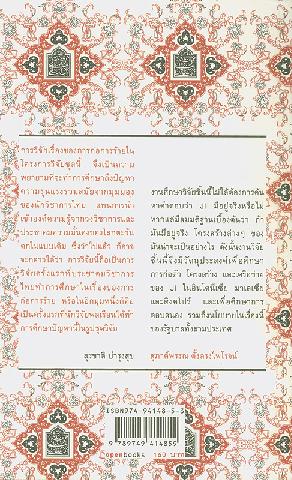 การวิจัยเรื่องของการก่อการร้ายใน
โครงการวิจัยชุดนี้ จึงเป็นความ
พยายามที่จะทำการศึกษาถึงปัญหา
ความรุนแรงร่วมสมัยจากมุมมอง
ของนักวิชาการไทย
ประชาคมความมั่นคงของโลกตะวัน
ตกในแบบเดิม ซึ่งว่าไปแล้ว ก็อาจ
จะกล่าวได้ว่า การวิจัยนี้ถือเป็นการ
วิจัยครั้งแรกที่ประชาคมวิชาการ
ไทยทำการศึกษาในเรื่องของการ
ก่อการร้าย หรือในอีกมุมหนึ่งก็คือ
เป็นครั้งแรกที่นักวิจัยพลเรือนได้ทำ
การศึกษาปัญหานี้ในรูปชุดวิจัย
สุรชาติ บำรุงสุข
งานศึกษาวิจัยชิ้นนี้ไม่ได้ต้องการค้น
หาคำตอบว่า JI มีอยู่จริงหรือไม่
หากแต่มีสมมติฐานเบื้องต้นว่า ถ้า
มันมีอยู่จริง โครงสร้างต่างๆ ของ
มันน่าจะเป็นอย่างไร ดังนั้นงานวิจัย
ชิ้นนี้จึงมีวัตถุประสงค์เพื่อศึกษา
การก่อตัว โครงสร้าง และเครือข่าย
ของ JI ในอินโดนีเซีย มาเลเซีย
และสิงคโปร์ และเพื่อศึกษาการ
ตอบสนอง รวมถึงนโยบายในเรื่องนี้
ของรัฐบาลทั้งสามประเทศ
สุภาค์พรรณ ตั้งตรงไพโรจน์
ISBN 974 94148-5-5
9 789749 414859
openbooks 160 บาท